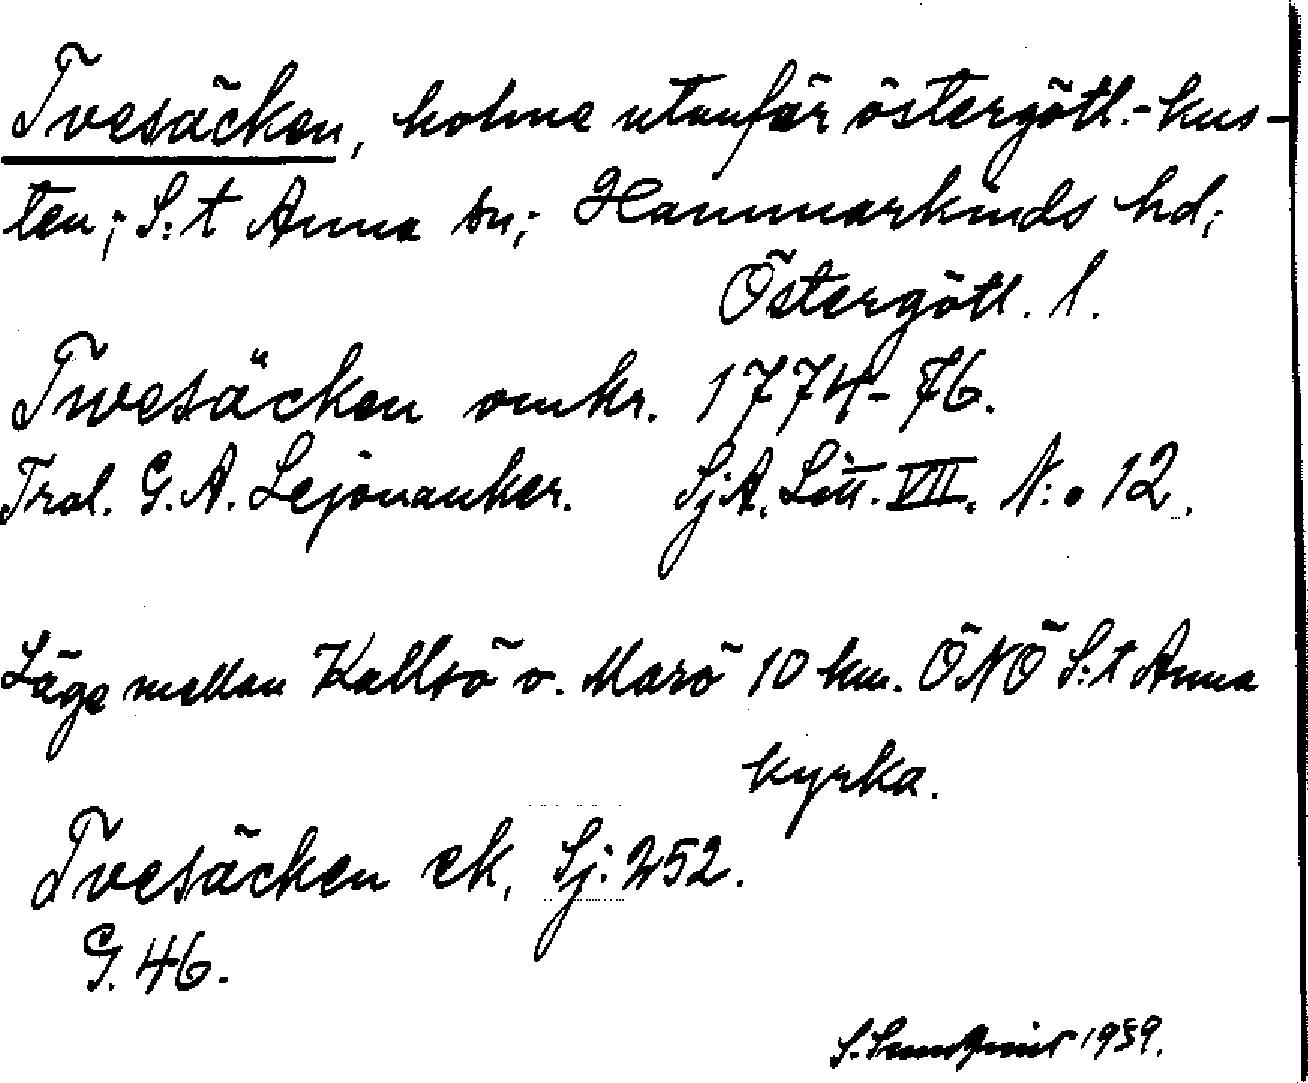 Tvesäcken, holme utanför östergötl.-kus-
ten; S:t Anna sn; Hammarkinds hd;
Östergötl. l.
Twesäcken omkr. 1774-76.
Trol. G. A. Lejonanker. SjA. Litt. VII. N:o 12.
Läge mellan Kallsö o. Marö 10 km. ÖNÖ S:t Anna
kyrka.
Tvesäcken ek. Sj: 252.
G. 46.
S. Sundqvist 1939.